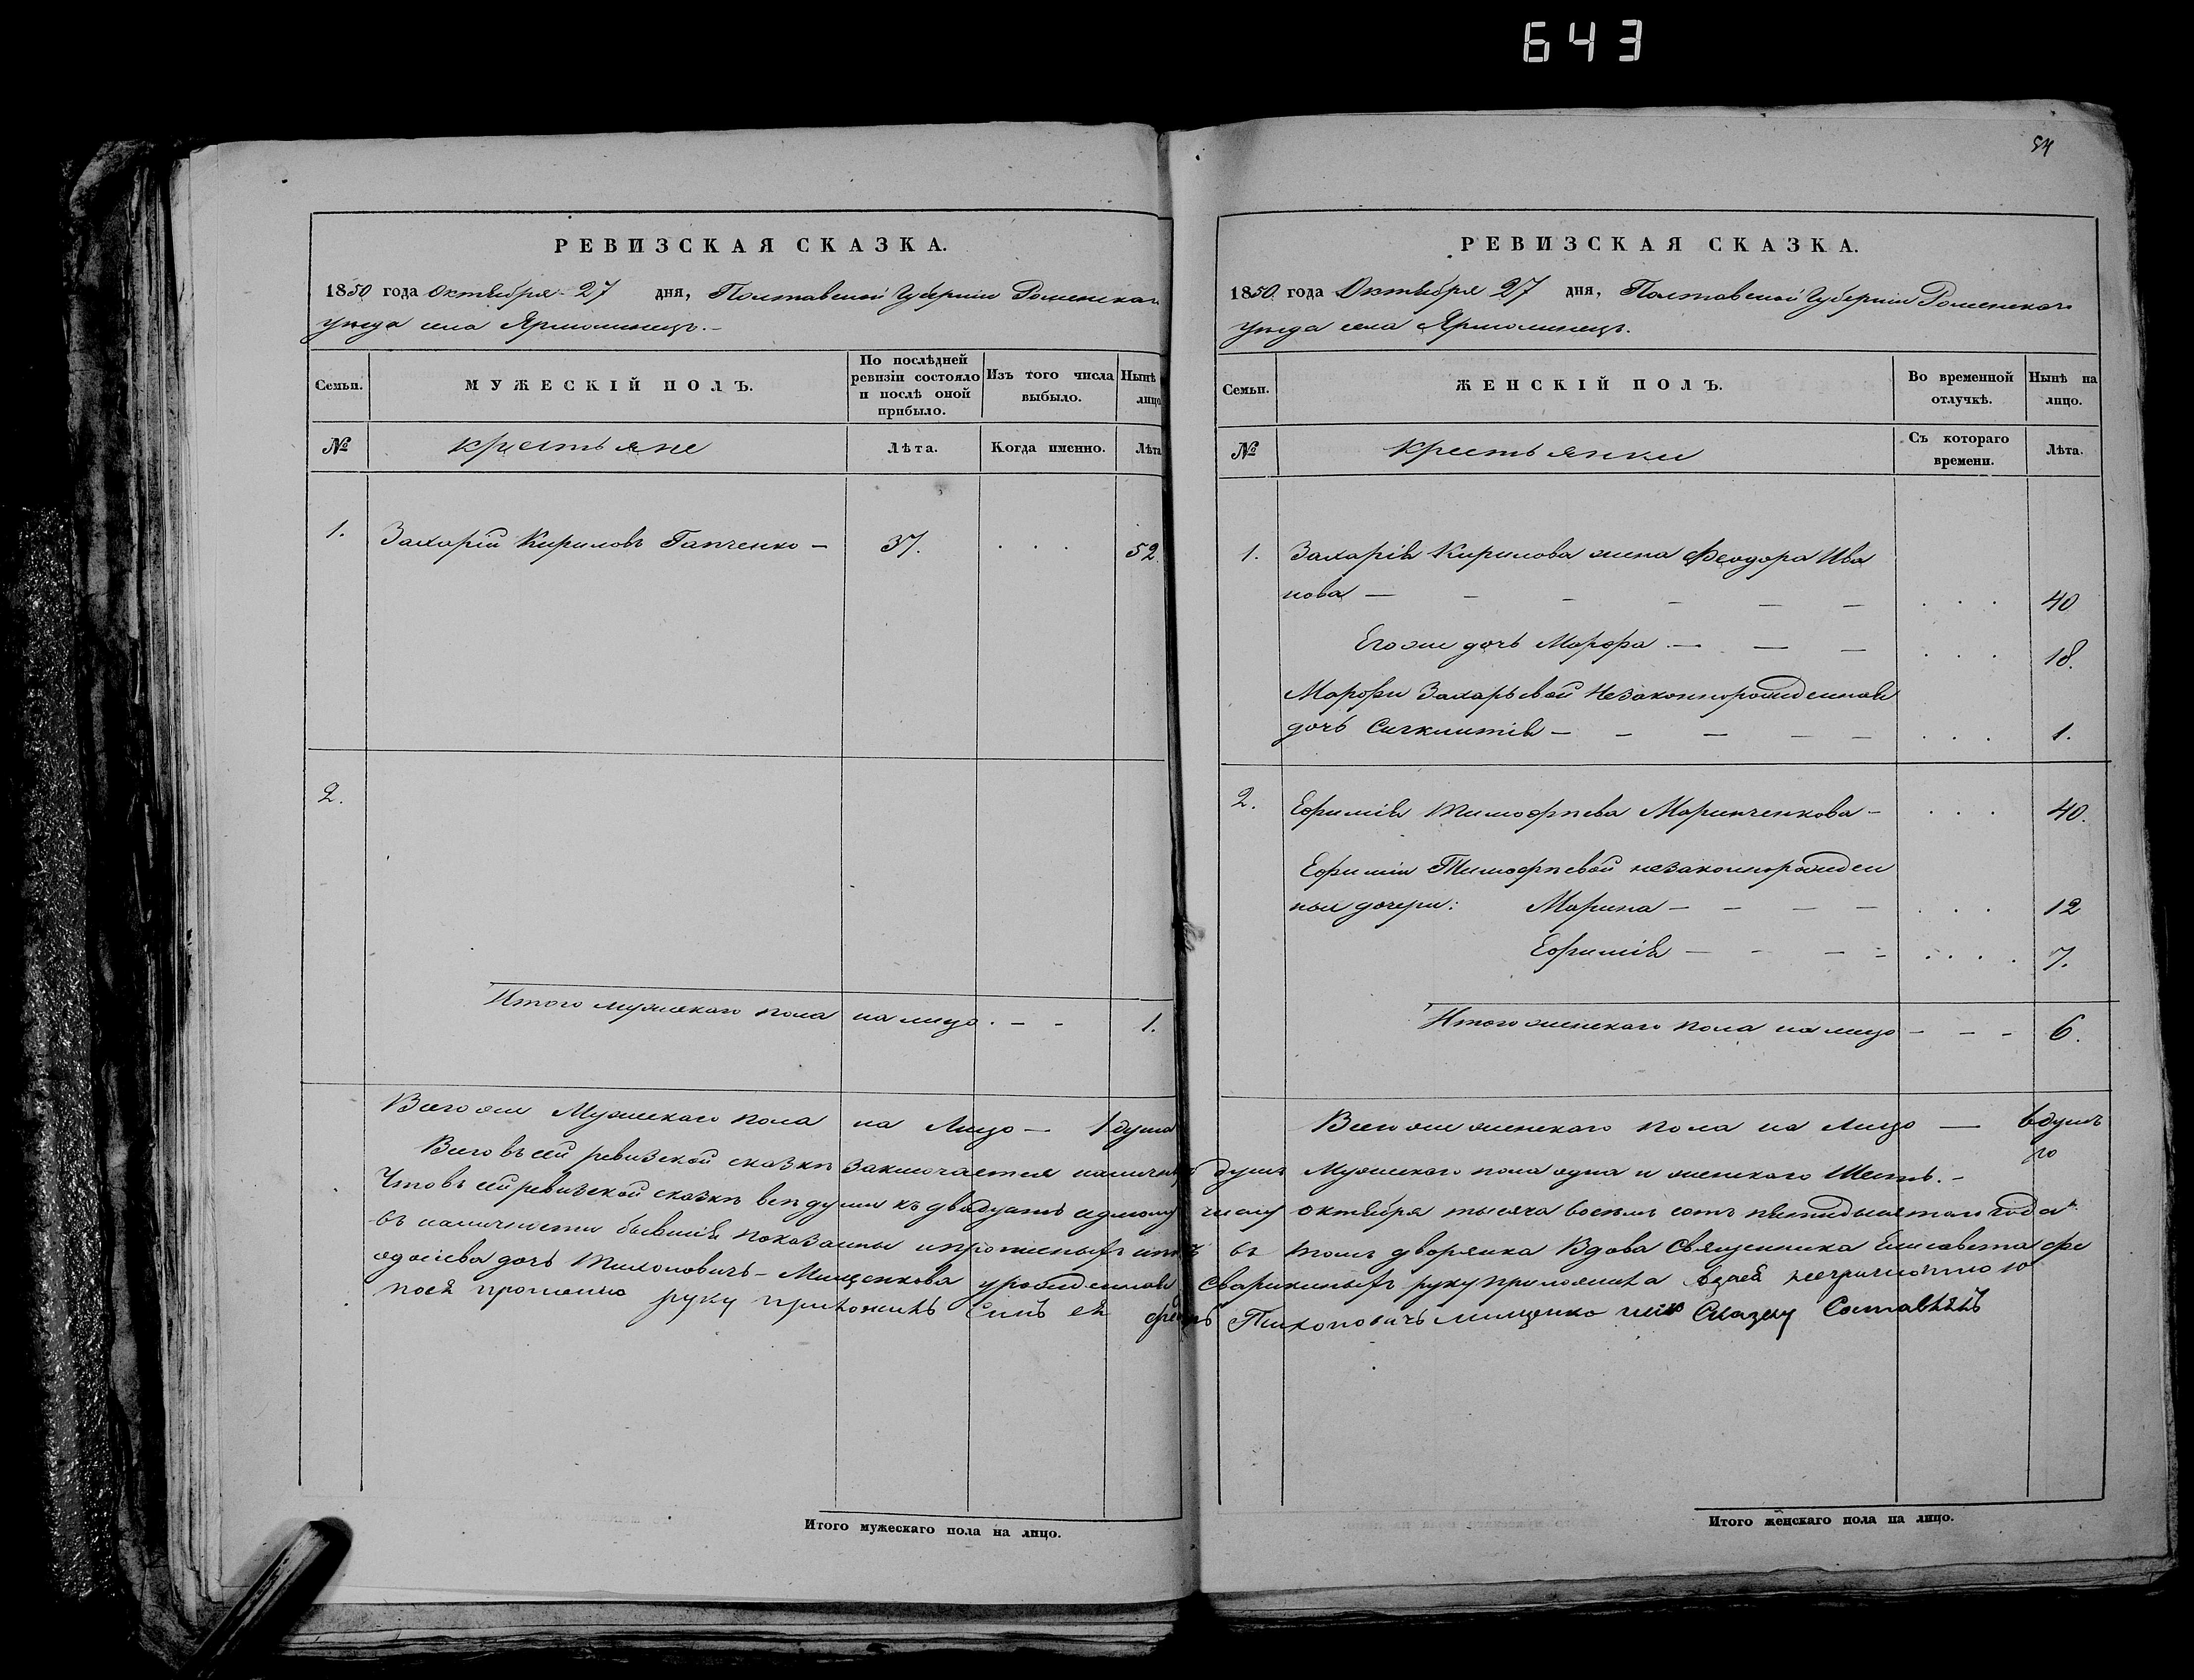 643
54
РЕВИЗСКАЯ СКАЗКА.
1850 года Октября 27 дня, Полтавской Губернiи Роменскаго
уѣзда села Ярмолинецъ.
Семьи.
МУЖЕСКІЙ ПОЛЪ.
По послѣдней ревизіи состояло и послѣ оной прибыло.
Изъ того числа выбыло.
Нынѣ лицо
№
крестьяне
Лѣта.
Когда именно.
Лѣта
1. Захарій Кириловъ Гапченко — 37. . . . 52.
2.
Итого мужескаго пола на лицо. — — 1.
Всего же Мужескаго пола на Лицо — 1 душа
РЕВИЗСКАЯ СКАЗКА.
1850 года Октября 27 дня, Полтавской Губернiи Роменскаго
уѣзда села Ярмолинецъ.
Семьи.
ЖЕНСКІЙ ПОЛЪ.
Во временной отлучкѣ.
Нынѣ на лицо.
№
крестьянки
Съ котораго времени.
Лѣта.
1. Захарія Кирилова жена Феодора Ива
нова — — — — — — . . . 40
Его же дочь Марфа — — — . . . 18.
Марфы Захарьевой Незаконнорожденная
дочь — — — — — . . . 1.
2. Ефимія Тимофѣева Маринченкова — . . . 40.
Ефиміи Тимофѣевой незаконнорожден
ныя дочери: Марина — — — — . . . 12
Ефимія — — — — . . . . 7.
Итого женскаго пола на лицо — — — 6.
Всего же женскаго пола на Лицо — 6 душъ
Всего въ сей ревизской сказкѣ заключается наличныхъ душъ Мужескаго пола одна и женскаго Шесть. —
Что въ сей ревизской сказкѣ всѣ души къ двадцать седмому числу октября тысяча восемь сотъ пятидесятаго года
въ наличности бывшія показаны и прописныхъ нѣтъ въ томъ дворянка Вдова Священника Елисавета
дочь Тихоновичъ-Мищенкова урожденная руку приложила а
прошенію руку приложилъ Синъ ея Тихоновичъ Мищенко Сказку Составлялъ
Итого мужескаго пола на лицо.
Итого женскаго пола на лицо.